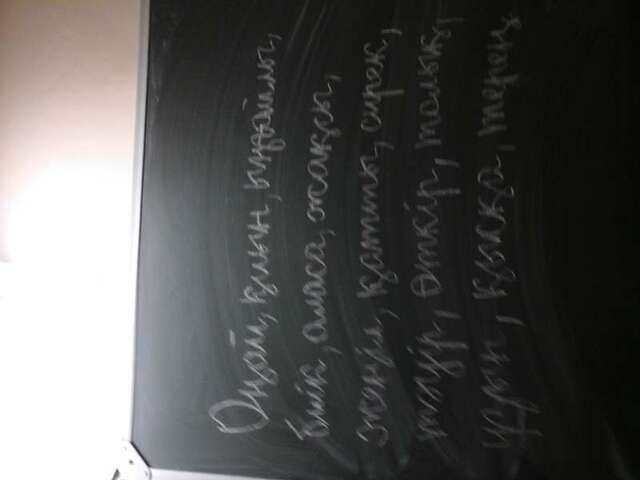 Оңай, қиын, ыңғайлы,
биік, аласа, жақсы,
жеңіл, қатты, сирек,
тәуір, өткір, толық,
ұзын, қысқа, терең